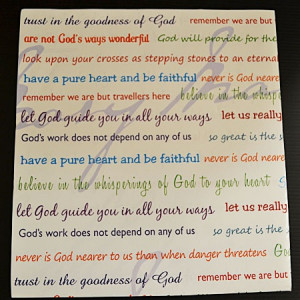 trust in the goodness of God remember we are but
are not God's ways wonderful God will provide for the
look upon your crosses as stepping stones to an eternal
have a pure heart and be faithful never is God nearer
remember we are but travellers here believe in the whisp
let God guide you in all your ways let us really
God's work does not depend on any of us so great is the s
have a pure heart and be faithful never is God nearer
believe in the whisperings of God to your heart
let God guide you in all your ways let us really
God's work does not depend on any of us so great is the
never is God nearer to us than when danger threatens God
trust in the goodness of God remember we are but